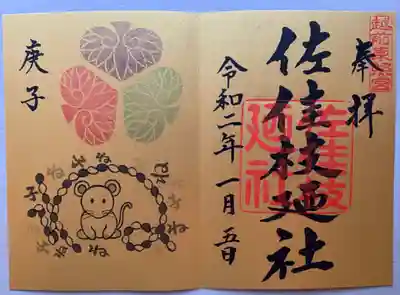 越前東照宮
奉拝
佐佳枝廼社
佐佳枝廼社
令和二年一月五日
庚子
ね
ね
ね
ね
ね
ね
ね
ね